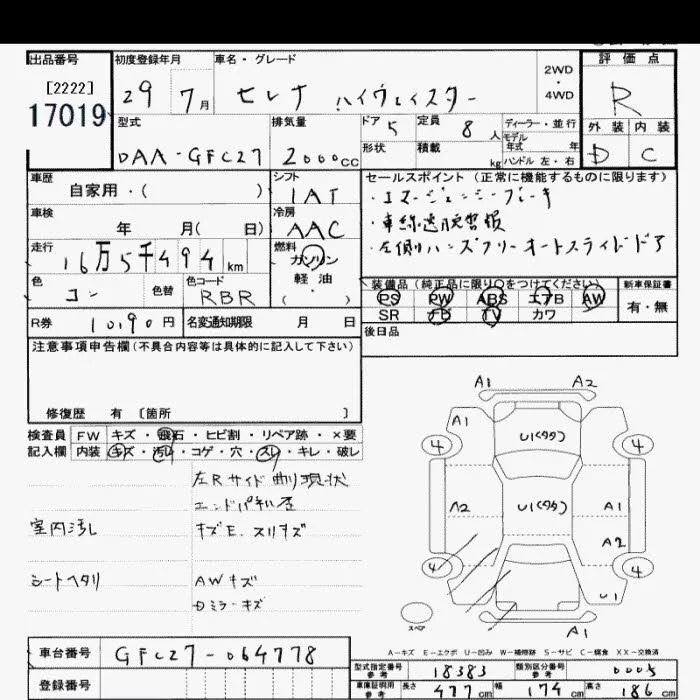 出品番号 初度登録年月 車名・グレード 評価点
[2222] 29 7月 セレナ ハイウェイスター 2WD・4WD R
17019
型式 排気量 ドア 5 定員 8人 ディーラー・並行 外装 内装
DAA-GFC27 2000cc 形状 積載 kg モデル年式 年 ハンドル 左・右 D C
車歴 シフト セールスポイント(正常に機能するものに限ります)
自家用・( ) IAT ・エマージェンシーブレーキ
車検 冷房 ・車線逸脱警報
年 月( 日) AAC ・左側ハンズフリーオートスライドドア
走行 燃料
16万5千494km ガソリン
軽・油
・( )
色 色替 色コード 装備品(純正品に限り○をつけてください) 新車保証書
コン RBR PS PW ABS エアB AW 有・無
SR ナビ TV カワ
R券 10,190円 名変通知期限 月 日 後日品
注意事項申告欄(不具合内容等は具体的に記入して下さい)
修復歴 有〔箇所 〕
検査員 FW キズ・飛石・ヒビ割・リペア跡・×要
記入欄 内装 キズ・汚れ・コゲ・穴・スレ・キレ・破レ
左Rサイド曲り現状
室内汚れ キズE、スリキズ
シートヘタリ AWキズ
ミラーキズ
A1 A2
A1 U1(タタ)
4 4
A2 U1(タタ) A1
A2
4 4
U1
スペア A1
A-キズ E-エクボ U-凹み W-補修跡 S-サビ C-腐食 XX-交換済
車台番号 GFC27-064778
型式指定番号 参考 18383 類別区分番号 参考 0005
登録番号 車庫証明用 参考 長さ 477cm 幅 174cm 高さ 186cm